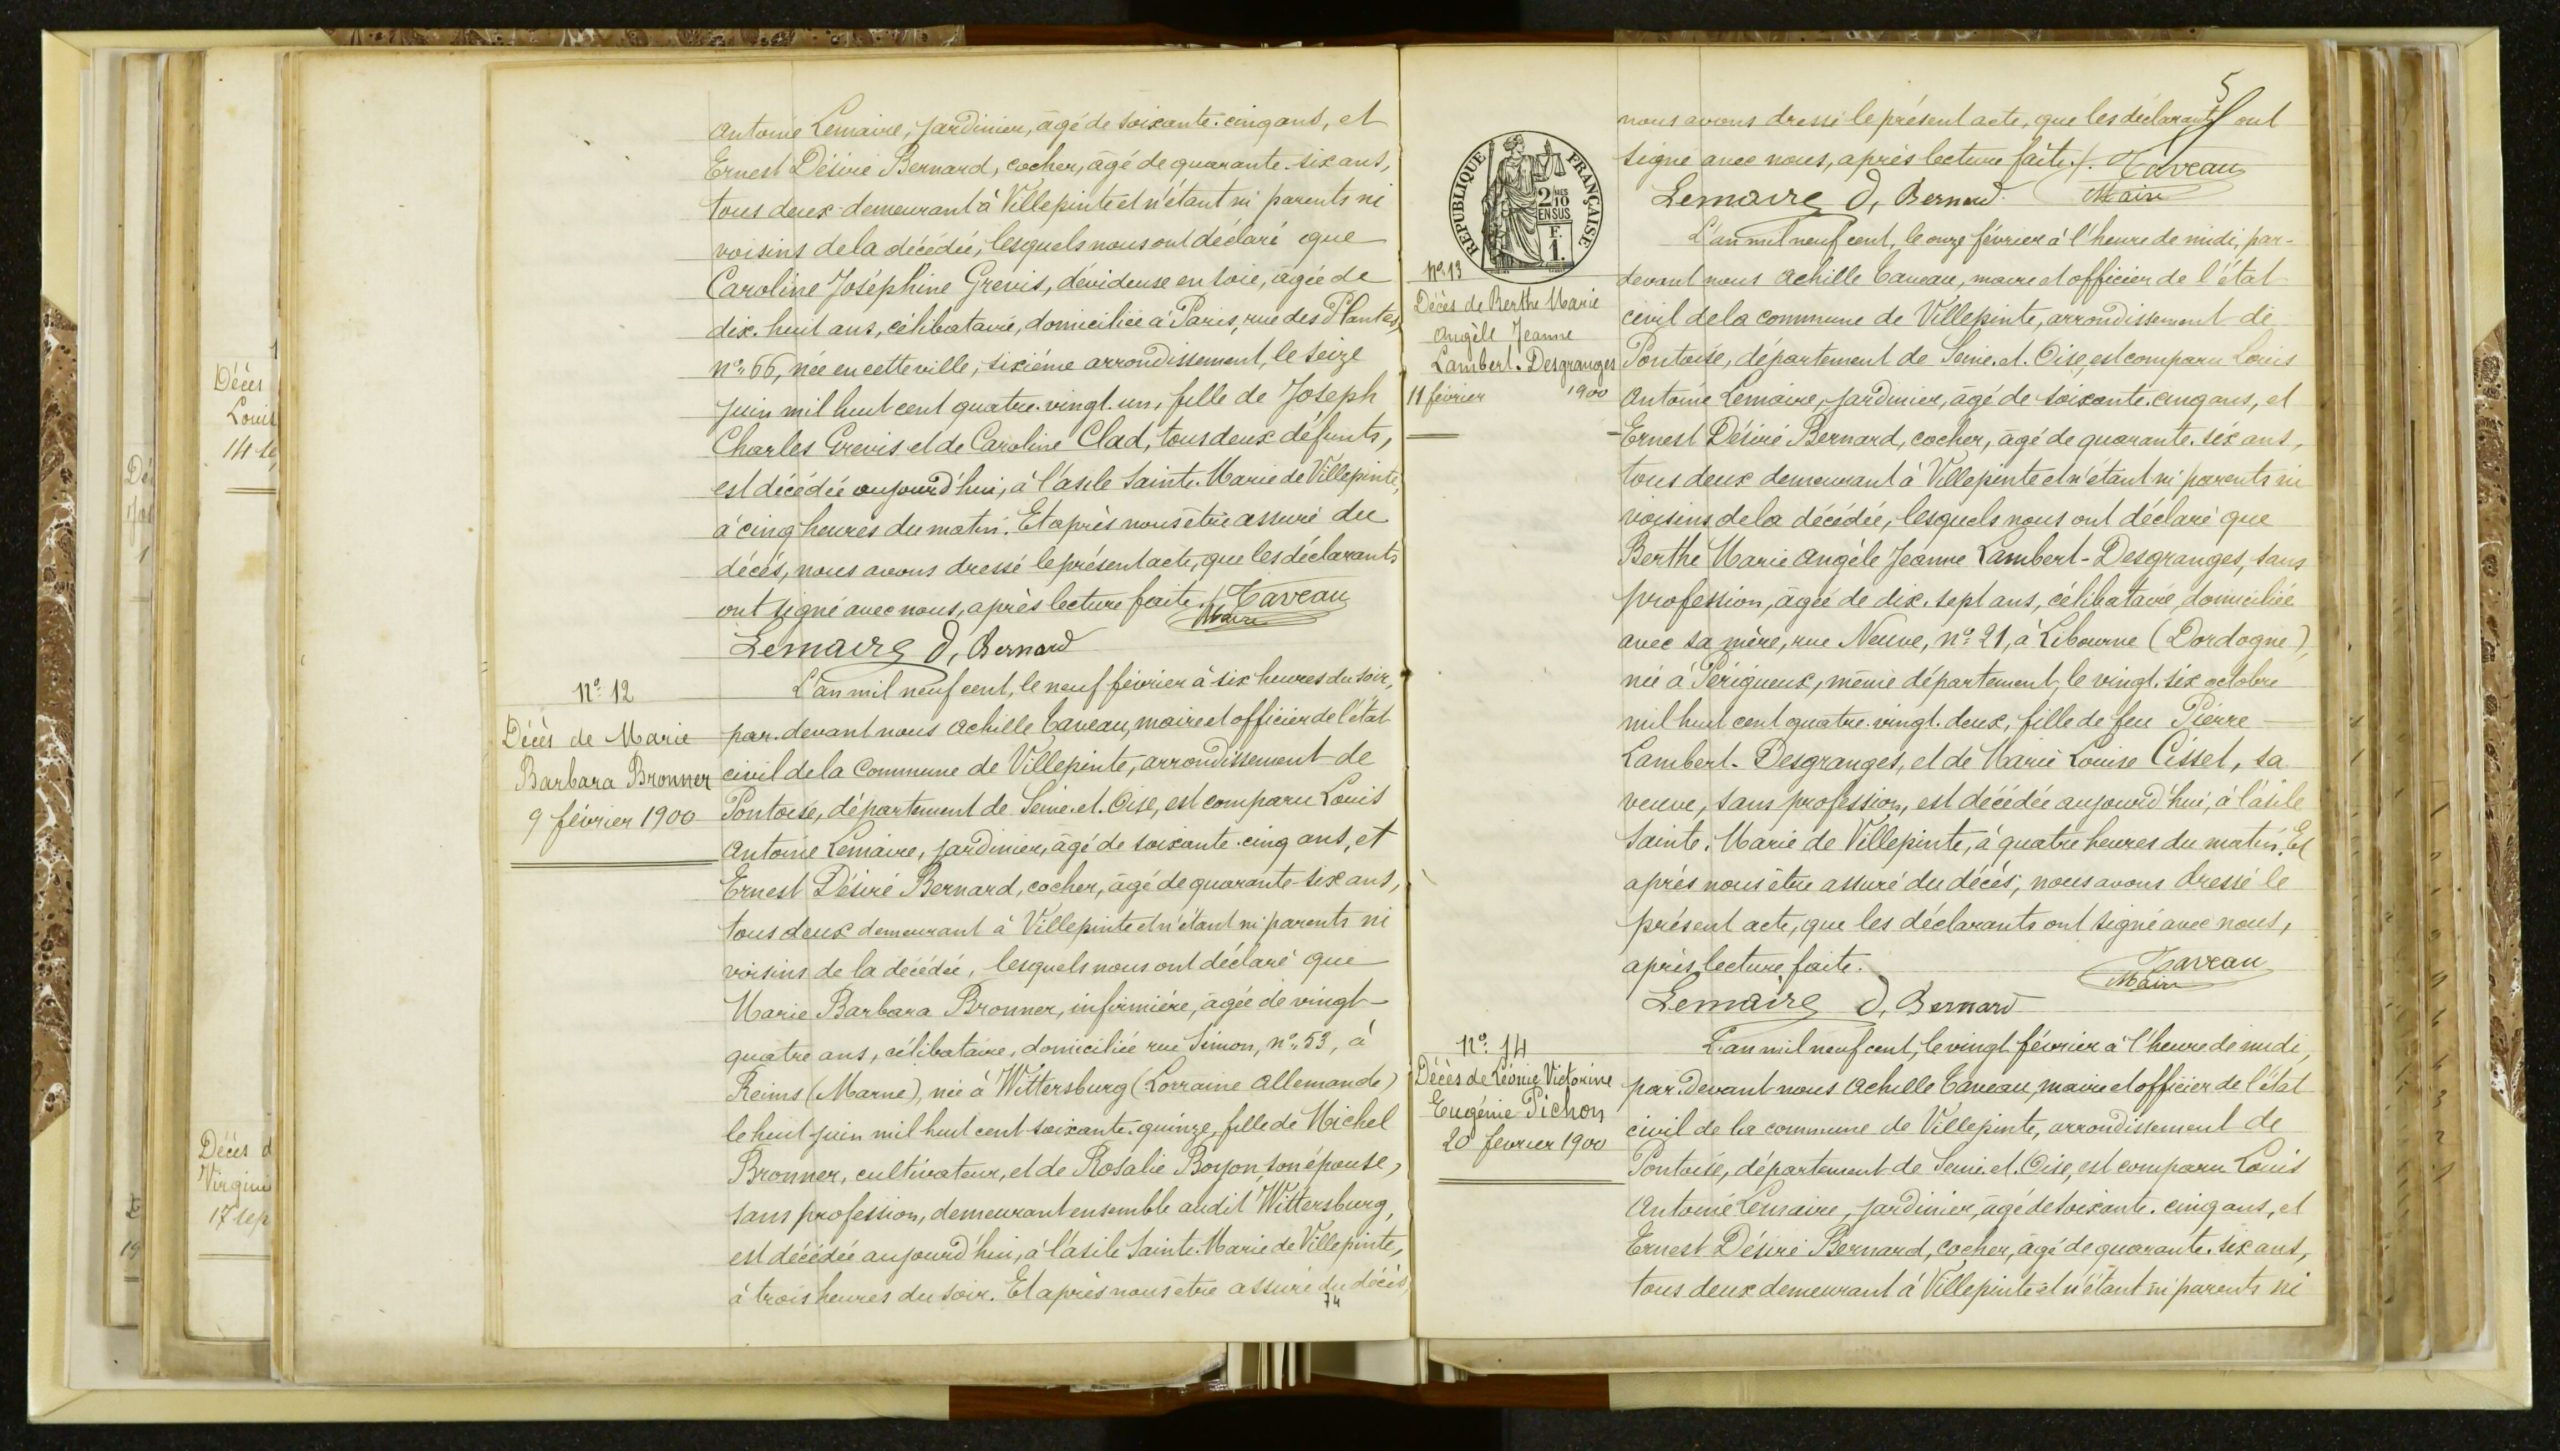 Décès
Louis
14 se
Décès d
Virgini
17 sep
Antoine Lemaire, jardinier, âgé de soixante-cinq ans, et
Ernest Désiré Bernard, cocher, âgé de quarante-six ans,
tous deux demeurant à Villepinte et n'étant ni parents ni
voisins de la décédée, lesquels nous ont déclaré que
Caroline Joséphine Grevis, dévideuse en soie, âgée de
dix-huit ans, célibataire, domiciliée à Paris, rue des Plantes,
no 66, née en cette ville, sixième arrondissement, le seize
juin mil huit cent quatre-vingt-un, fille de Joseph
Charles Grevis et de Caroline Clad, tous deux défunts,
est décédée aujourd'hui, à l'asile Sainte-Marie de Villepinte,
à cinq heures du matin. Et après nous être assuré du
décès, nous avons dressé le présent acte, que les déclarants
ont signé avec nous, après lecture faite ./. Taveau
Maire
Lemaire D, Bernard
No 12
Décès de Marie
Barbara Bronner
9 février 1900
L'an mil neuf cent, le neuf février à six heures du soir,
par-devant nous Achille Taveau, maire et officier de l'état
civil de la Commune de Villepinte, arrondissement de
Pontoise, département de Seine-et-Oise, est comparu Louis
Antoine Lemaire, jardinier, âgé de soixante-cinq ans, et
Ernest Désiré Bernard, cocher, âgé de quarante-six ans,
tous deux demeurant à Villepinte et n'étant ni parents ni
voisins de la décédée, lesquels nous ont déclaré que
Marie Barbara Bronner, infirmière, âgée de vingt-
quatre ans, célibataire, domiciliée rue Simon, no 53, à
Reims (Marne), née à Wittersburg (Lorraine Allemande)
le huit juin mil huit cent soixante-quinze, fille de Michel
Bronner, cultivateur, et de Rosalie Boyon, son épouse,
sans profession, demeurant ensemble audit Wittersburg,
est décédée aujourd'hui, à l'asile Sainte-Marie de Villepinte,
à trois heures du soir. Et après nous être assuré du décès,
74
5
nous avons dressé le présent acte, que les déclarants ont
signé avec nous, après lecture faite ./. Taveau
Maire
Lemaire D, Bernard
RÉPUBLIQUE FRANÇAISE
2/10 EN SUS
F.
1.
No 13
Décès de Berthe Marie
Angèle Jeanne
Lambert-Desgranges
11 février 1900
L'an mil neuf cent, le onze février à l'heure de midi, par-
devant nous Achille Taveau, maire et officier de l'état
civil de la commune de Villepinte, arrondissement de
Pontoise, département de Seine-et-Oise, est comparu Louis
Antoine Lemaire, jardinier, âgé de soixante-cinq ans, et
Ernest Désiré Bernard, cocher, âgé de quarante-six ans,
tous deux demeurant à Villepinte et n'étant ni parents ni
voisins de la décédée, lesquels nous ont déclaré que
Berthe Marie Angèle Jeanne Lambert-Desgranges, sans
profession, âgée de dix-sept ans, célibataire, domiciliée
avec sa mère, rue Neuve, no 21, à Libourne (Dordogne),
née à Périgueux, même département, le vingt-six octobre
mil huit cent quatre-vingt-deux, fille de feu Pierre
Lambert-Desgranges, et de Marie Louise Cisset, sa
veuve, sans profession, est décédée aujourd'hui, à l'asile
Sainte-Marie de Villepinte, à quatre heures du matin. Et
après nous être assuré du décès, nous avons dressé le
présent acte, que les déclarants ont signé avec nous,
après lecture faite. Taveau
Maire
Lemaire D, Bernard
No 14
Décès de Léonie Victorine
Eugénie Pichon
20 février 1900
L'an mil neuf cent, le vingt février à l'heure de midi,
par-devant nous Achille Taveau, maire et officier de l'état
civil de la commune de Villepinte, arrondissement de
Pontoise, département de Seine-et-Oise, est comparu Louis
Antoine Lemaire, jardinier, âgé de soixante-cinq ans, et
Ernest Désiré Bernard, cocher, âgé de quarante-six ans,
tous deux demeurant à Villepinte et n'étant ni parents ni